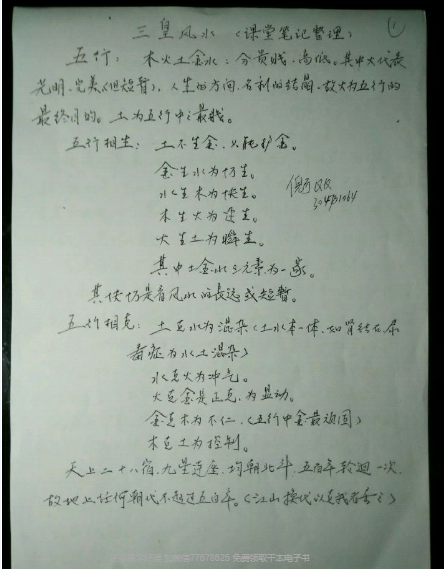 三皇风水 (课堂笔记整理)
①
五行: 木火土金水: 分贵贱、高低。其中火代表
光明、完美(但短暂), 人生的方向, 名利的结晶, 故火为五行的
最终目的。土为五行中之最贱。
五行相生: 土不生金, 只能护金。
金生水为仍生。
水生木为快生。
木生火为 生。
火生土为 生。
其中土金水三元素为一家。
其快仍是看风水的长远或短暂。
五行相克: 土克水为混杂(土水本一体, 如肾结石, 尿
毒症为水土混杂)
水克火为冲气。
火克金是正克, 为显功。
金克木为不仁, (五行中金最顽固)
木克土为控制。
天上二十八宿, 九星 座, 均朝北斗, 五百年轮迴一次,
故地上任何朝代不超过五百年。(江山换代以
免费领取千本电子书